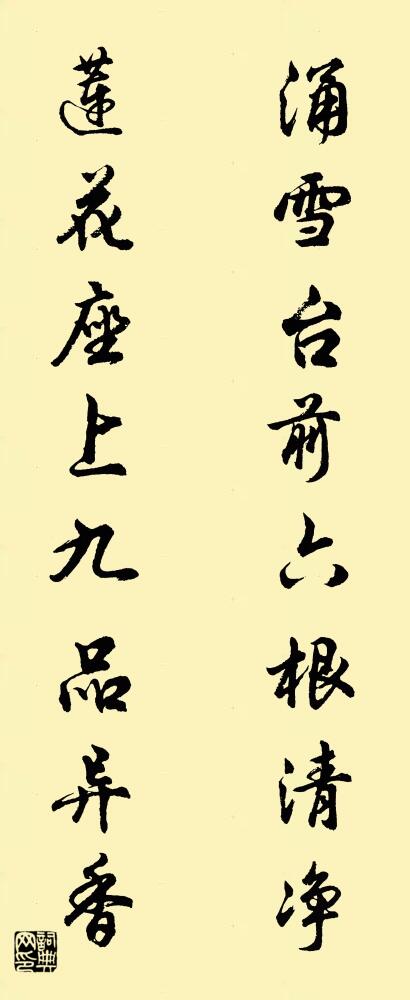 涌雪台前六根清净
蓮花座上九品异香
詞典
网印